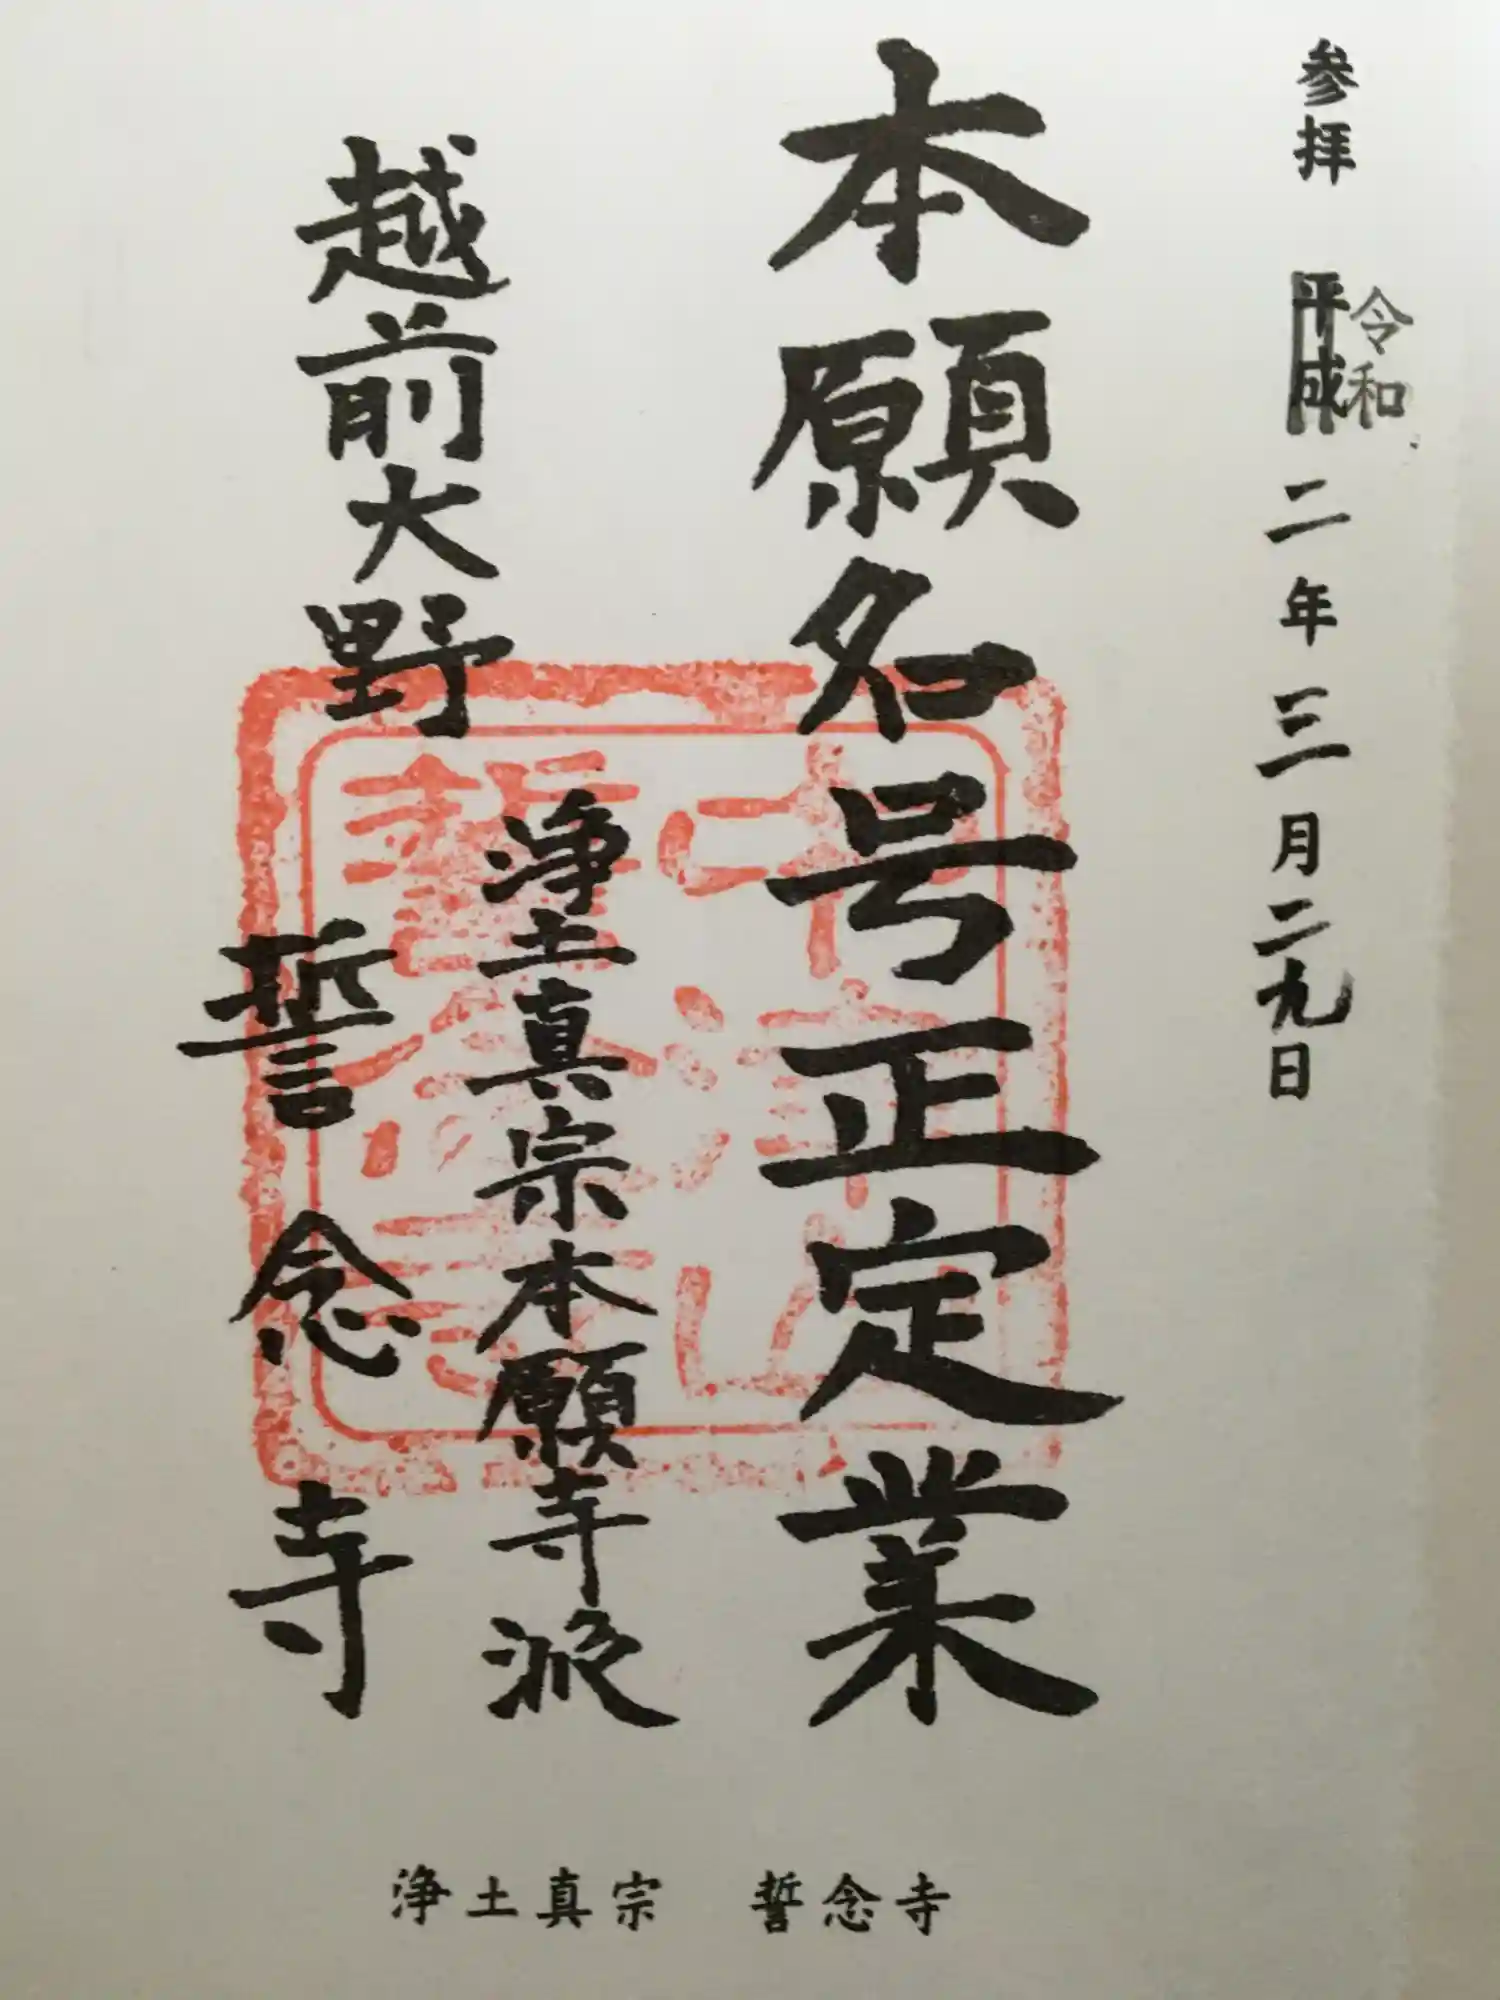 参拝 平成 令和 二年三月二九日
本願名号正定業
浄土真宗本願寺派
越前大野 誓念寺
浄土真宗 誓念寺